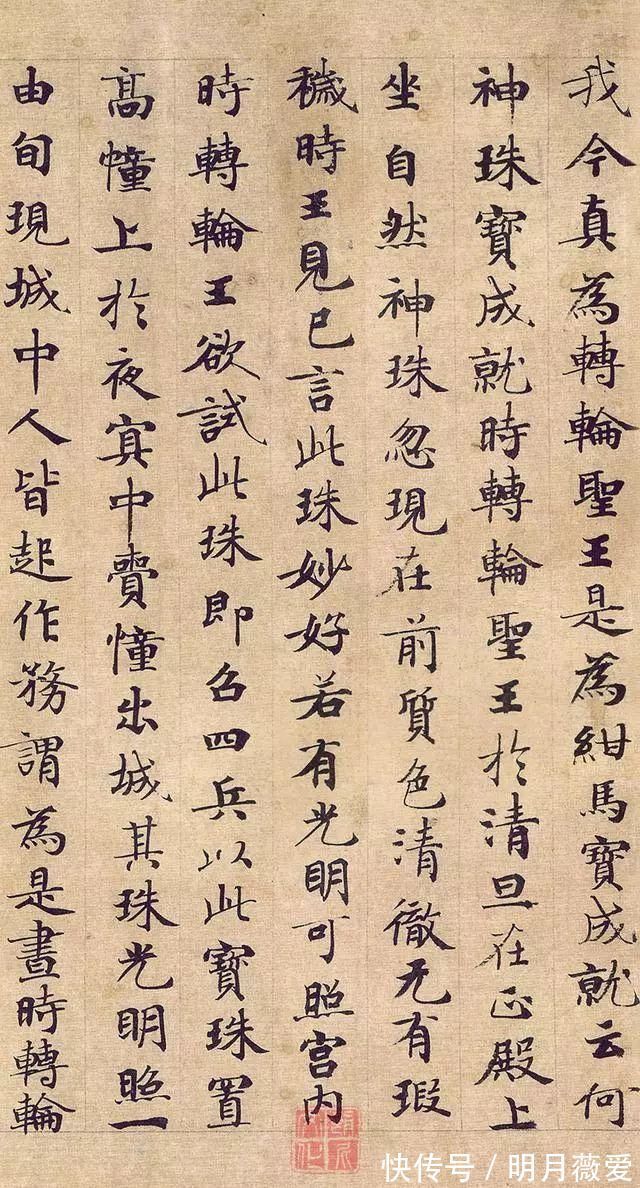 我今真為轉輪聖王是為紺馬寶成就云何
神珠寶成就時轉輪聖王於清旦在正殿上
坐自然神珠忽現在前質色清徹无有瑕
穢時王見已言此珠妙好若有光明可照宮內
時轉輪王欲試此珠即召四兵以此寶珠置
高幢上於夜冥中賷幢出城其珠光明照一
由旬現城中人皆起作務謂為是晝時轉輪
快传号／明月薇爱